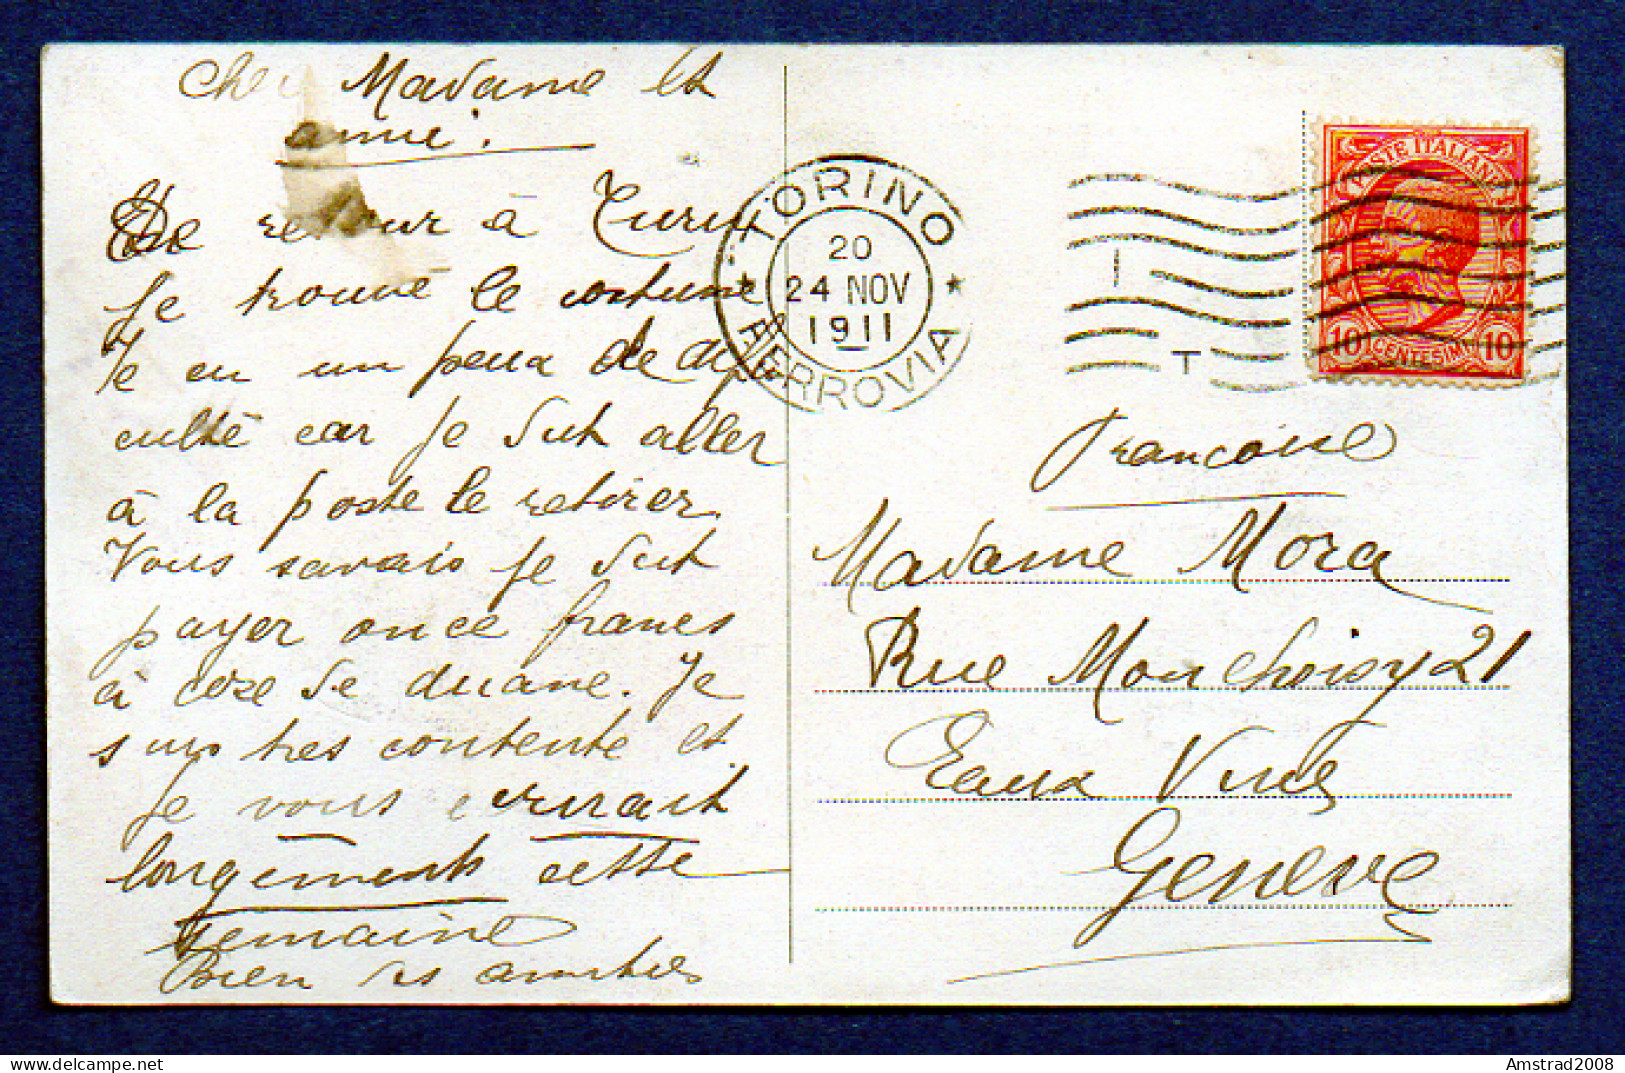 Cher Madame et
amie.
De retour à Turin
Je trouve le costume
Je eu un peux de difi
culté car je dut aller
à la poste le retirer.
Vous savais je dut
payer once francs
à coze de duane. Je
suis tres contente et
Je vous ecrirait
longements cette
semaine
Bien des amities
TORINO
FERROVIA
20
24 NOV
1911
I
T
POSTE ITALIANE
10 CENTESIMI 10
Francoise
Madame Mora
Rue Monchoisy 21
Eaux Vives
Geneve
Amstrad2008